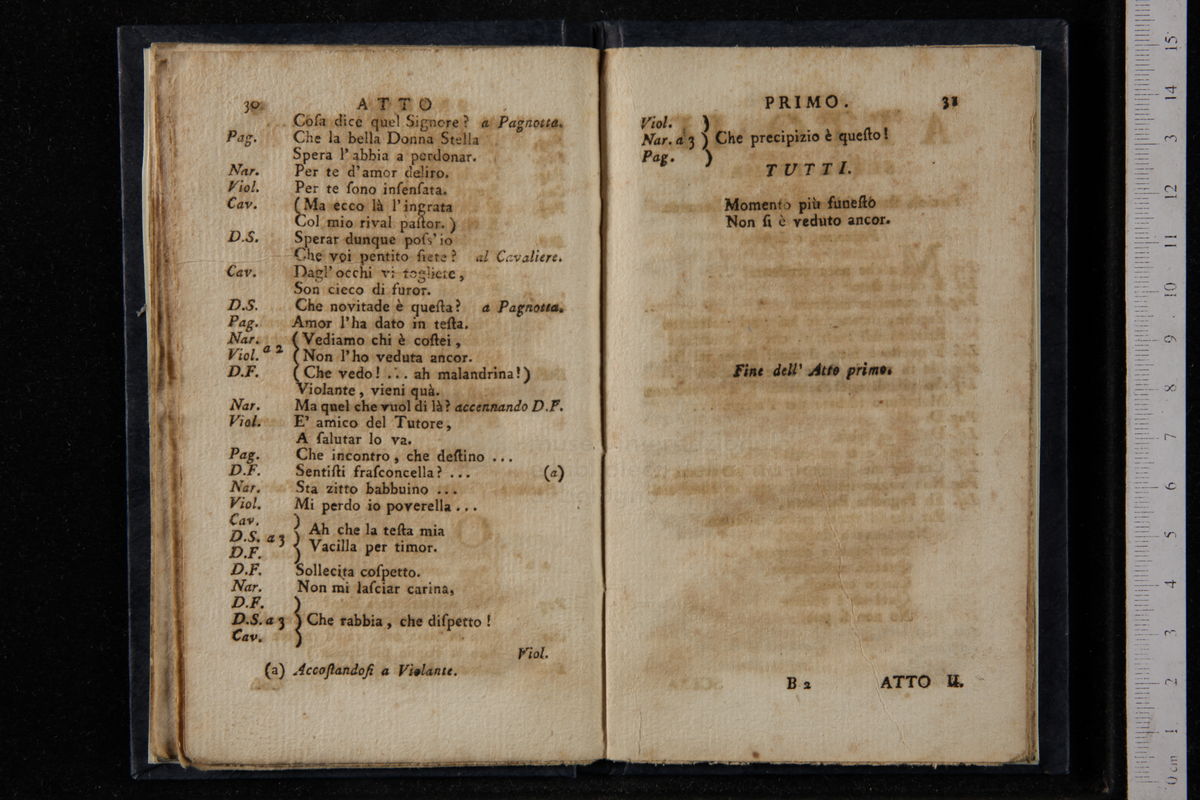 30 ATTO
Coſa dice quel Signore? a Pagnotta.
Pag. Che la bella Donna Stella
Spera l'abbia a perdonar.
Nar. Per te d'amor deliro.
Viol. Per te ſono inſenſata.
Cav. (Ma ecco là l'ingrata
Col mio rival paſtor.)
D.S. Sperar dunque poſs'io
Che voi pentito ſiete? al Cavaliere.
Cav. Dagl'occhi vi togliete,
Son cieco di furor.
D.S. Che novitade è queſta? a Pagnotta.
Pag. Amor l'ha dato in teſta.
Nar. (Vediamo chi è coſtei,
Viol. a 2 (Non l'ho veduta ancor.
D.F. (Che vedo! ... ah malandrina!)
Violante, vieni quà.
Nar. Ma quel che vuol di là? accennando D.F.
Viol. E' amico del Tutore,
A ſalutar lo va.
Pag. Che incontro, che deſtino ...
D.F. Sentiſti fraſconcella? ... (a)
Nar. Sta zitto babbuino ...
Viol. Mi perdo io poverella ...
Cav. )
D.S. a 3 ) Ah che la teſta mia
D.F. ) Vacilla per timor.
D.F. Sollecita coſpetto.
Nar. Non mi laſciar carina,
D.F. )
D.S. a 3 ) Che rabbia, che diſpetto!
Cav. )
Viol.
(a) Accoſtandoſi a Violante.
PRIMO. 31
Viol. )
Nar. a 3 ) Che precipizio è queſto!
Pag. )
TUTTI.
Momento più funeſto
Non ſi è veduto ancor.
Fine dell' Atto primo.
B 2 ATTO II.
0 cm 1 2 3 4 5 6 7 8 9 10 11 12 13 14 15